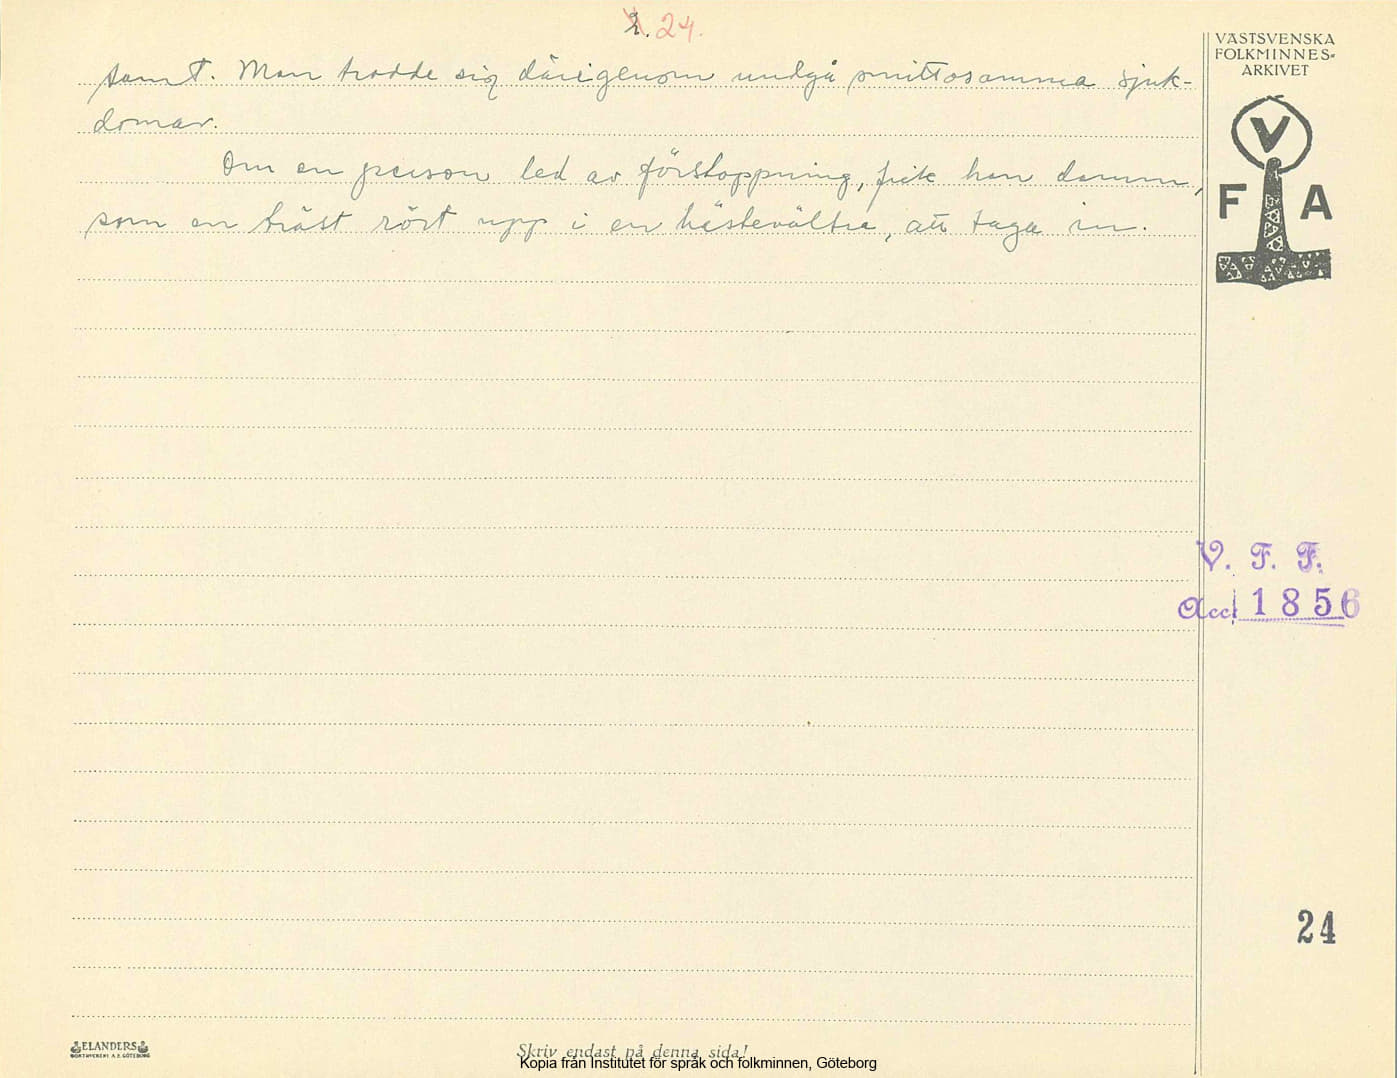 2. 24.
VÄSTSVENSKA
FOLKMINNES-
ARKIVET
V
F A
tamt. Man trodde sig därigenom undgå smittosamma sjuk-
domar.
Om en person led av förstoppning, fick han damm,
som en häst rört upp i en hästevältra, att taga in.
V. F. F.
Acc. 1856
24
ELANDERS
BOKTRYCKERI A.B. GÖTEBORG
Skriv endast på denna sida!
Kopia från Institutet för språk och folkminnen, Göteborg